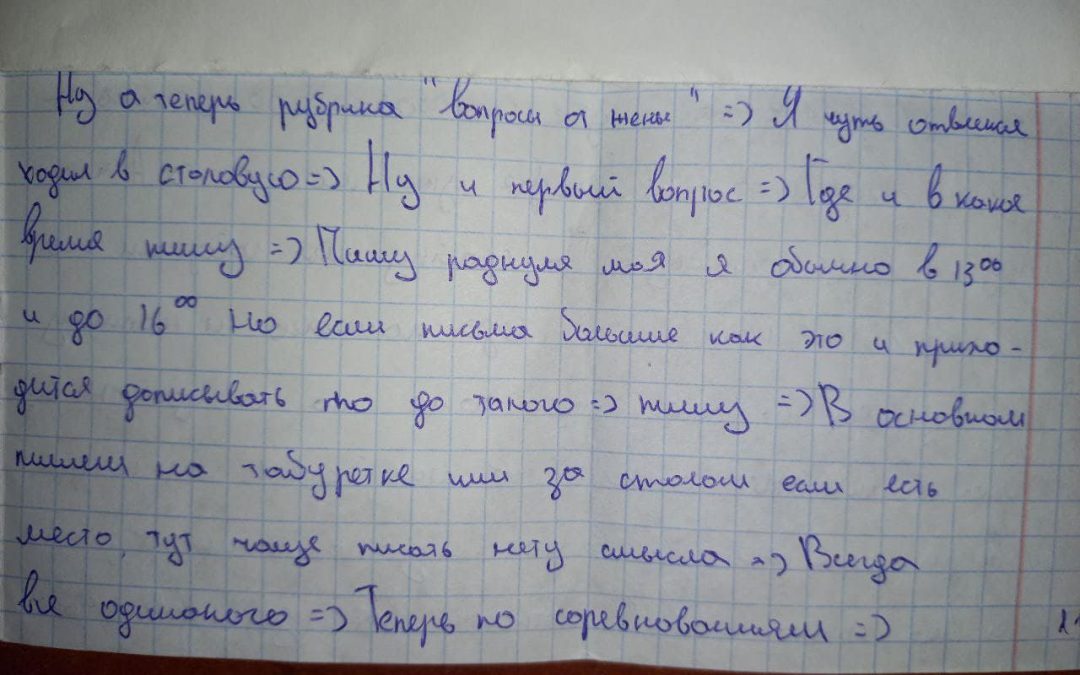 Ну а теперь рубрика "вопросы от жены" => Я чуть отвлекся
ходил в столовую => Ну и первый вопрос => Где и в какое
время пишу => Пишу роднуля моя я обычно в 13⁰⁰
и до 16⁰⁰ Но если письма большие как это и прихо-
дится дописывать то до такого => пишу => В основном
пишем на табуретке или за столом если есть
место, тут чаще писать нету смысла => Всегда
все одинакого => Теперь по соревнованиям =>